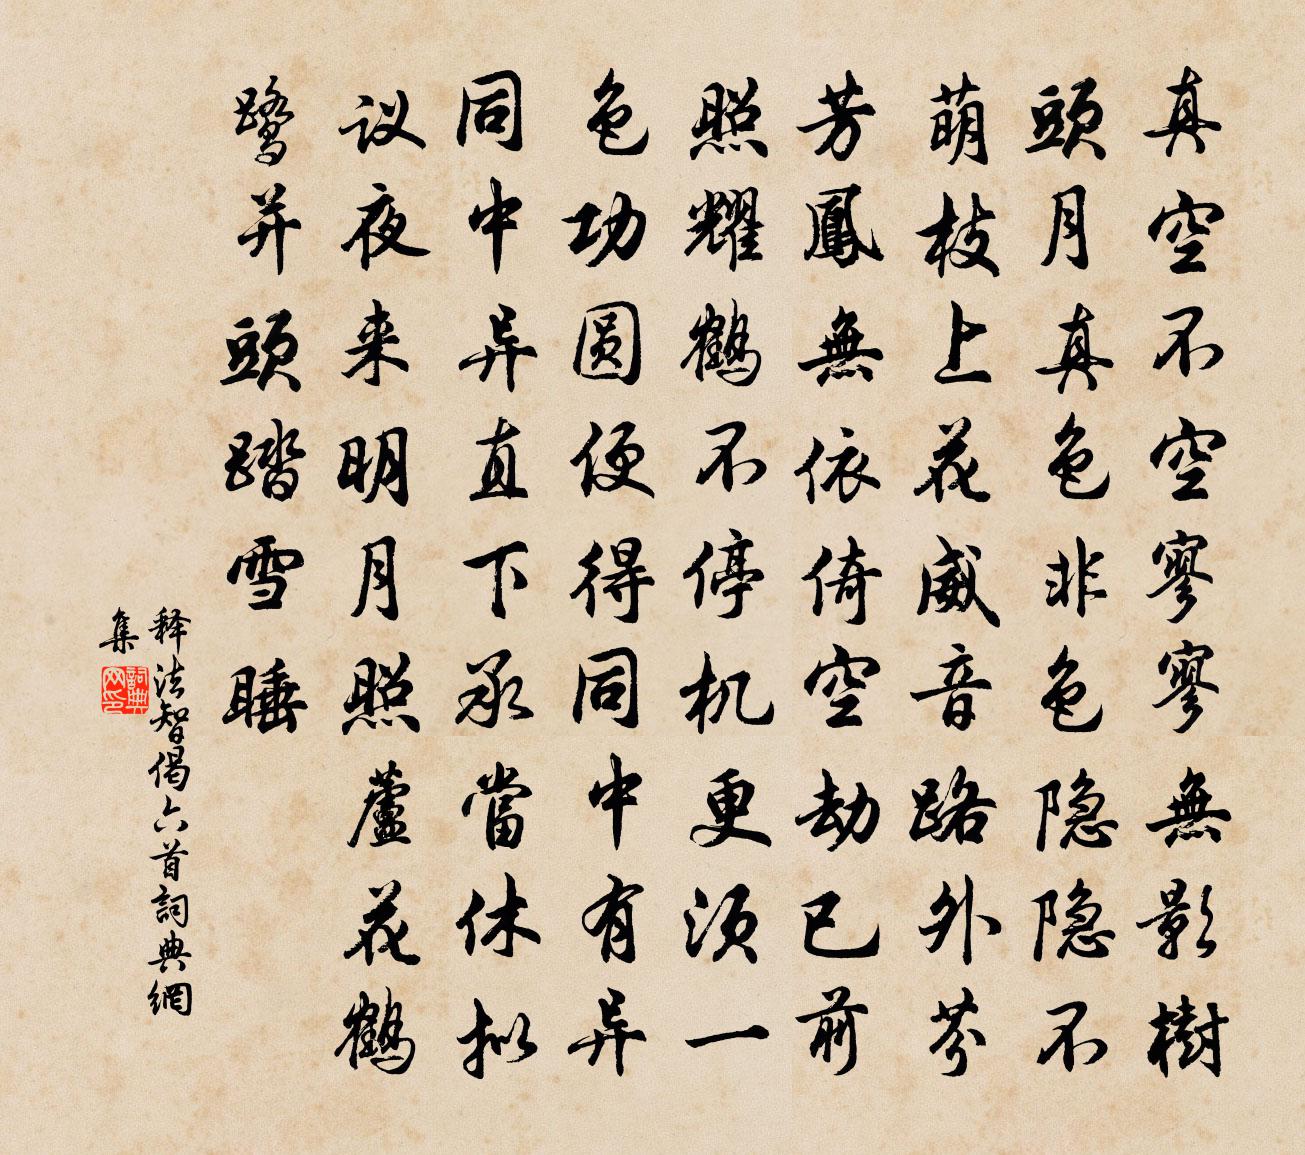 真空不空寥寥無影樹
頭月真色非色隐隐不
萌枝上花威音路外芬
芳鳳無依倚空劫已前
照耀鶴不停机更须一
色功圆便得同中有异
同中异直下承當休拟
议夜来明月照蘆花鶴
鹭并頭踏雪睡
释法智偈六首詞典網
集
詞典网印